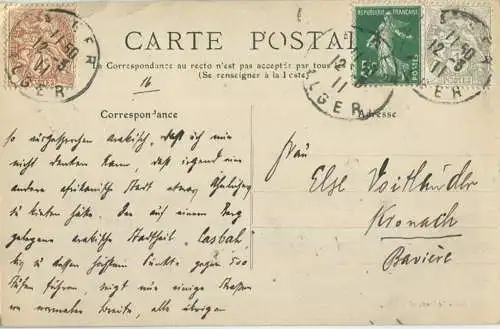 CARTE POSTALE
La Correspondance au recto n'est pas acceptée par tous
(Se renseigner à la Poste)
16
Correspondance
Adresse
so ausgesprochen arabisch, daß ich mir
nicht denken kann, daß irgend eine
andere afrikanische Stadt etwas Ähnliches
zu bieten hätte. Der auf einem Berg
gelegene arabische Stadtteil "Casbah"
zu dessen höchstem Punkte gegen 500
Stufen führen, zeigt nur einige Straßen
von normaler Breite, alle übrigen
Frau
Else Voitländer
Kronach
Bavière
ALGER
11 50
12 -3
11
REPUBLIQUE FRANÇAISE
POSTES
ALGER
11 50
12 -3
11